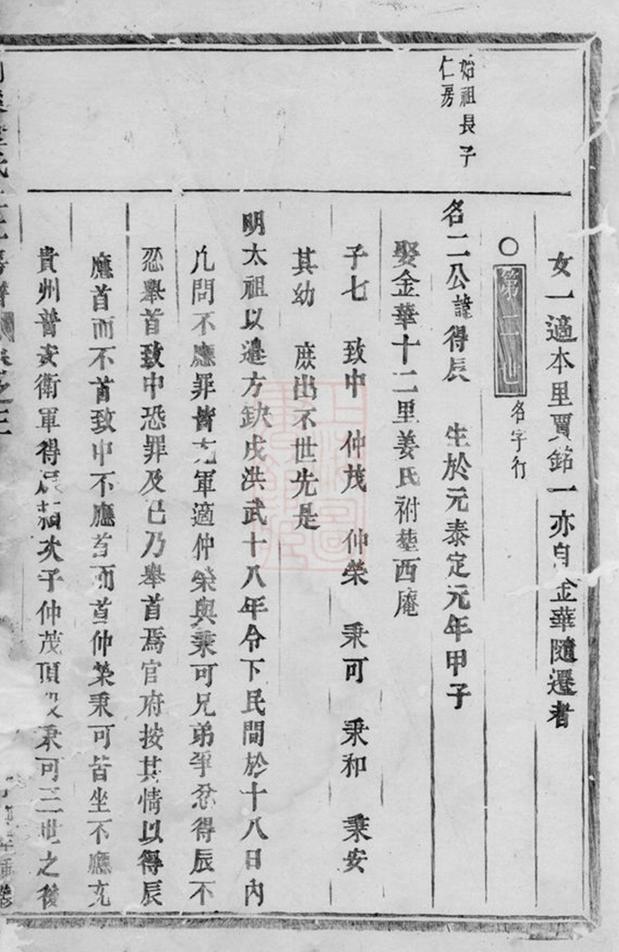 始祖長子
仁房
女一適本里賈銘一亦自金華隨遷者
○第二世 名字行
名二公諱得辰 生於元泰定元年甲子
娶金華十二里姜氏祔塟西庵
子七 致中 仲茂 仲榮 秉可 秉和 秉安
其幼 庶出不世先是
明太祖以邊方缺戍洪武十八年令下民間於十八日內
凢問不應罪皆充軍適仲榮與秉可兄弟爭忿得辰不
忍舉首致中恐罪及已乃舉首焉官府按其情以得辰
應首而不首致中不應首而首仲榮秉可皆坐不應充
貴州普安衛軍得辰着次子仲茂頂役秉可三世之後